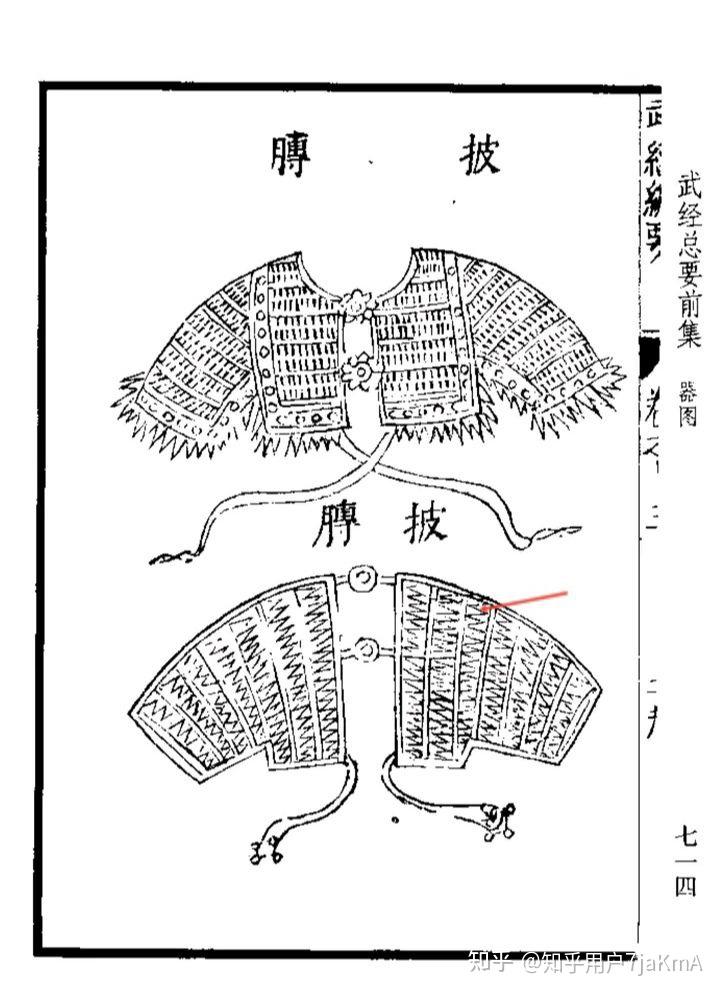 武经总要前集 器图
七一四
武經總要
披膊
披膊
知乎 @知乎用户7jaKmA